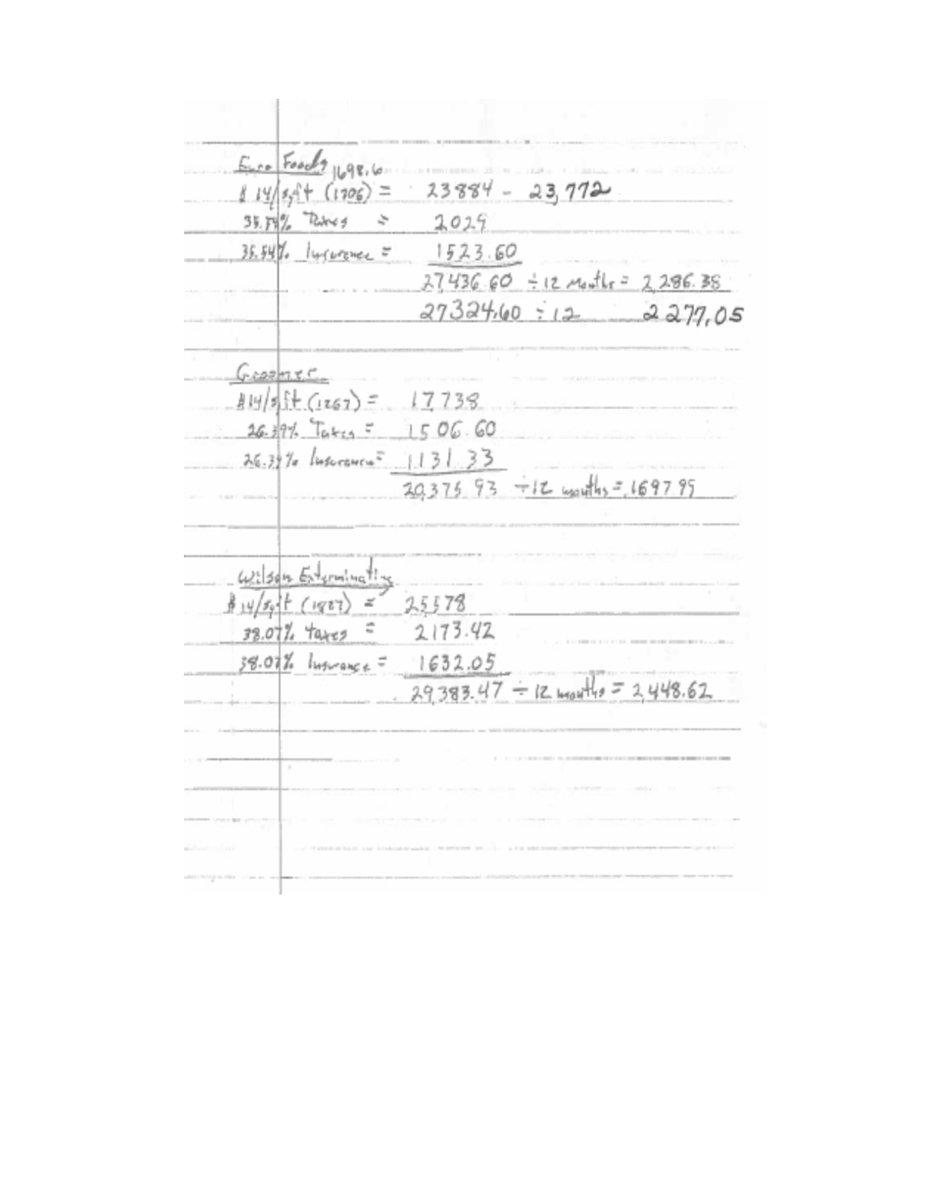 Euro Foods 1698.6
$ 14/sqft (1706) = 23884 - 23,772
35.54% Taxes = 2029
35.54% Insurance = 1523.60
27,436.60 ÷ 12 Months = 2,286.38
27324.60 ÷ 12 2277.05
Groomer
$14/sqft (1267) = 17738
26.39% Taxes = 1506.60
26.39% Insurance = 1131.33
20,375.93 ÷ 12 months = 1697.99
Wilson Exterminating
$14/sqft (1827) = 25578
38.07% taxes = 2173.42
38.07% Insurance = 1632.05
29,383.47 ÷ 12 months = 2,448.62